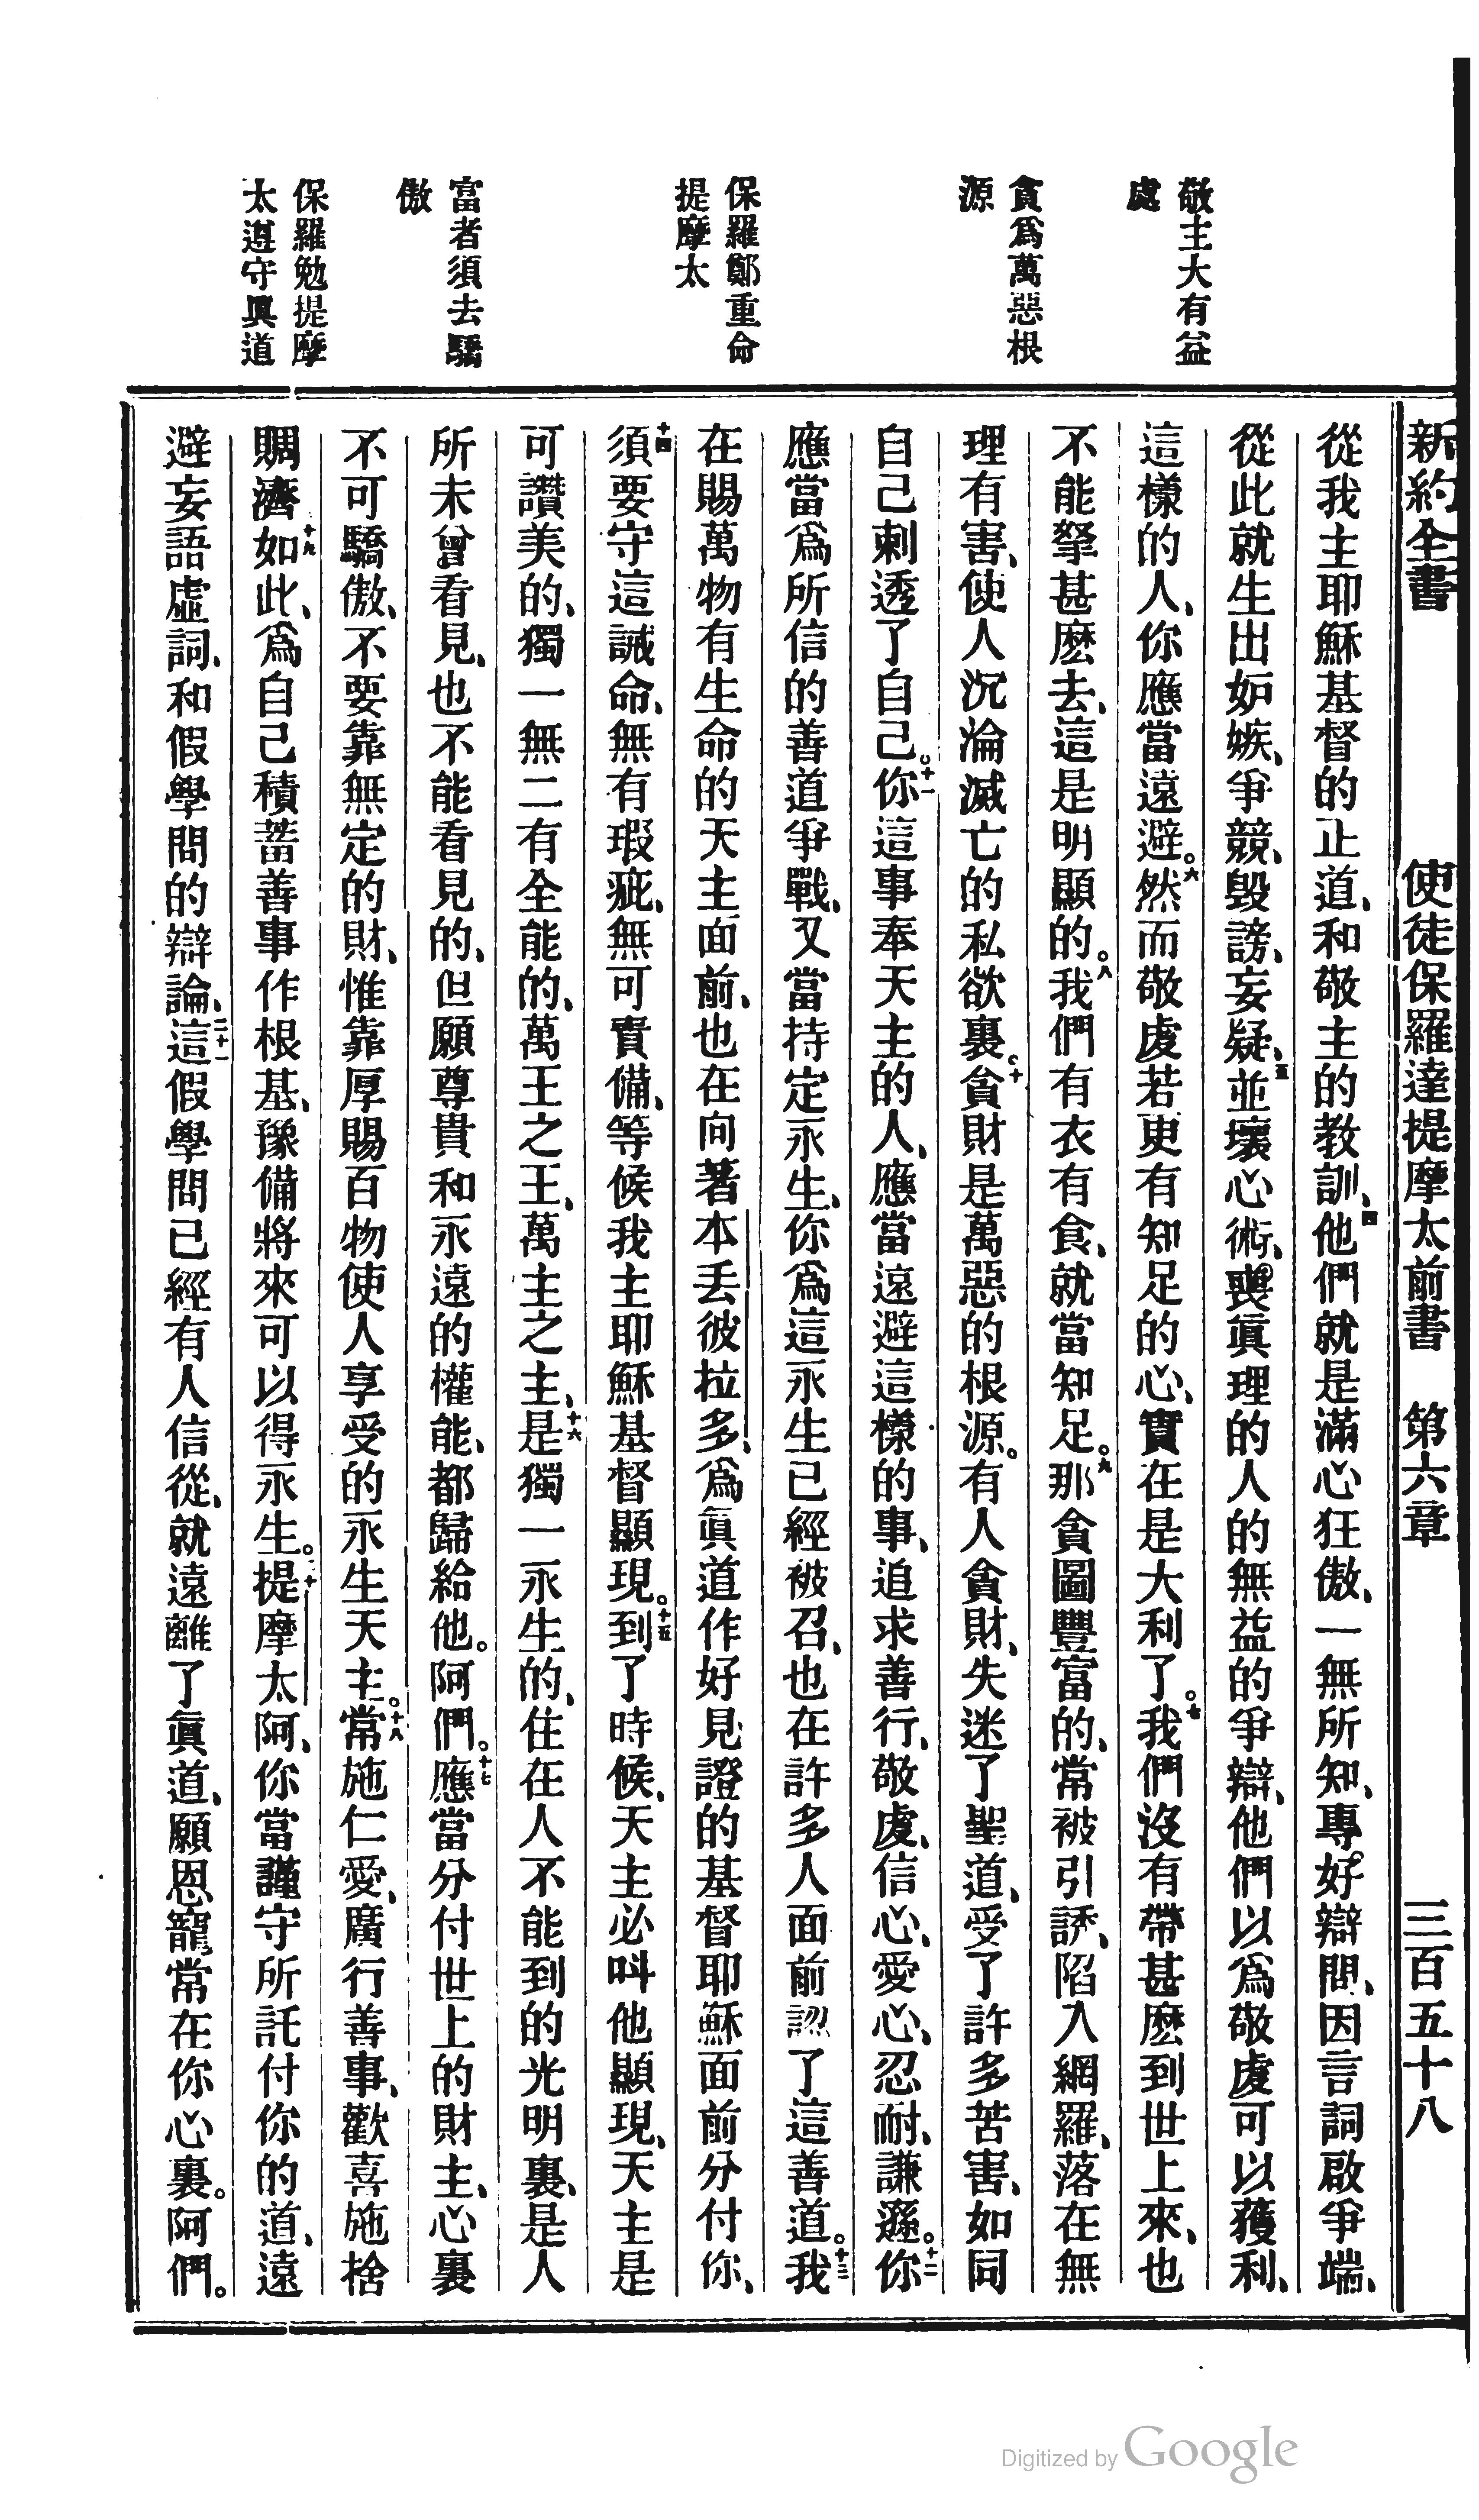 新約全書 使徒保羅達提摩太前書 第六章 三百五十八
敬主大有益
處
貪爲萬惡根
源
保羅鄭重命
提摩太
富者須去驕
傲
保羅勉提摩
太遵守眞道
從我主耶穌基督的正道、和敬主的教訓、四他們就是滿心狂傲、一無所知、專好辯問、因言詞啟爭端、
從此就生出妒嫉、爭競、毀謗、妄疑、五並壞心術、喪眞理的人的無益的爭辯、他們以爲敬虔可以獲利、
這樣的人、你應當遠避。六然而敬虔若更有知足的心、實在是大利了。七我們沒有帶甚麽到世上來、也
不能拏甚麽去、這是明顯的。八我們有衣有食、就當知足。九那貪圖豐富的、常被引誘、陷入網羅、落在無
理有害、使人沉淪滅亡的私欲裏。十貪財是萬惡的根源。有人貪財、失迷了聖道、受了許多苦害、如同
自己刺透了自己。十一你這事奉天主的人、應當遠避這樣的事、追求善行、敬虔、信心、愛心、忍耐、謙遜。十二你
應當爲所信的善道爭戰、又當持定永生、你爲這永生已經被召、也在許多人面前認了這善道。十三我
在賜萬物有生命的天主面前、也在向著本丟彼拉多、爲眞道作好見證的基督耶穌面前分付你、
十四須要守這誡命、無有瑕疵、無可責備、等候我主耶穌基督顯現。十五到了時候、天主必呌他顯現、天主是
可讚美的、獨一無二有全能的、萬王之王、萬主之主、十六是獨一永生的、住在人不能到的光明裏、是人
所未曾看見、也不能看見的、但願尊貴和永遠的權能、都歸給他。阿們。十七應當分付世上的財主、心裏
不可驕傲、不要靠無定的財、惟靠厚賜百物使人享受的永生天主。十八常施仁愛、廣行善事、歡喜施捨
賙濟、十九如此、爲自己積蓄善事作根基、豫備將來可以得永生。二十提摩太阿、你當謹守所託付你的道、遠
避妄語虛詞、和假學問的辯論、二十一這假學問已經有人信從、就遠離了眞道、願恩寵常在你心裏。阿們。
Digitized by Google